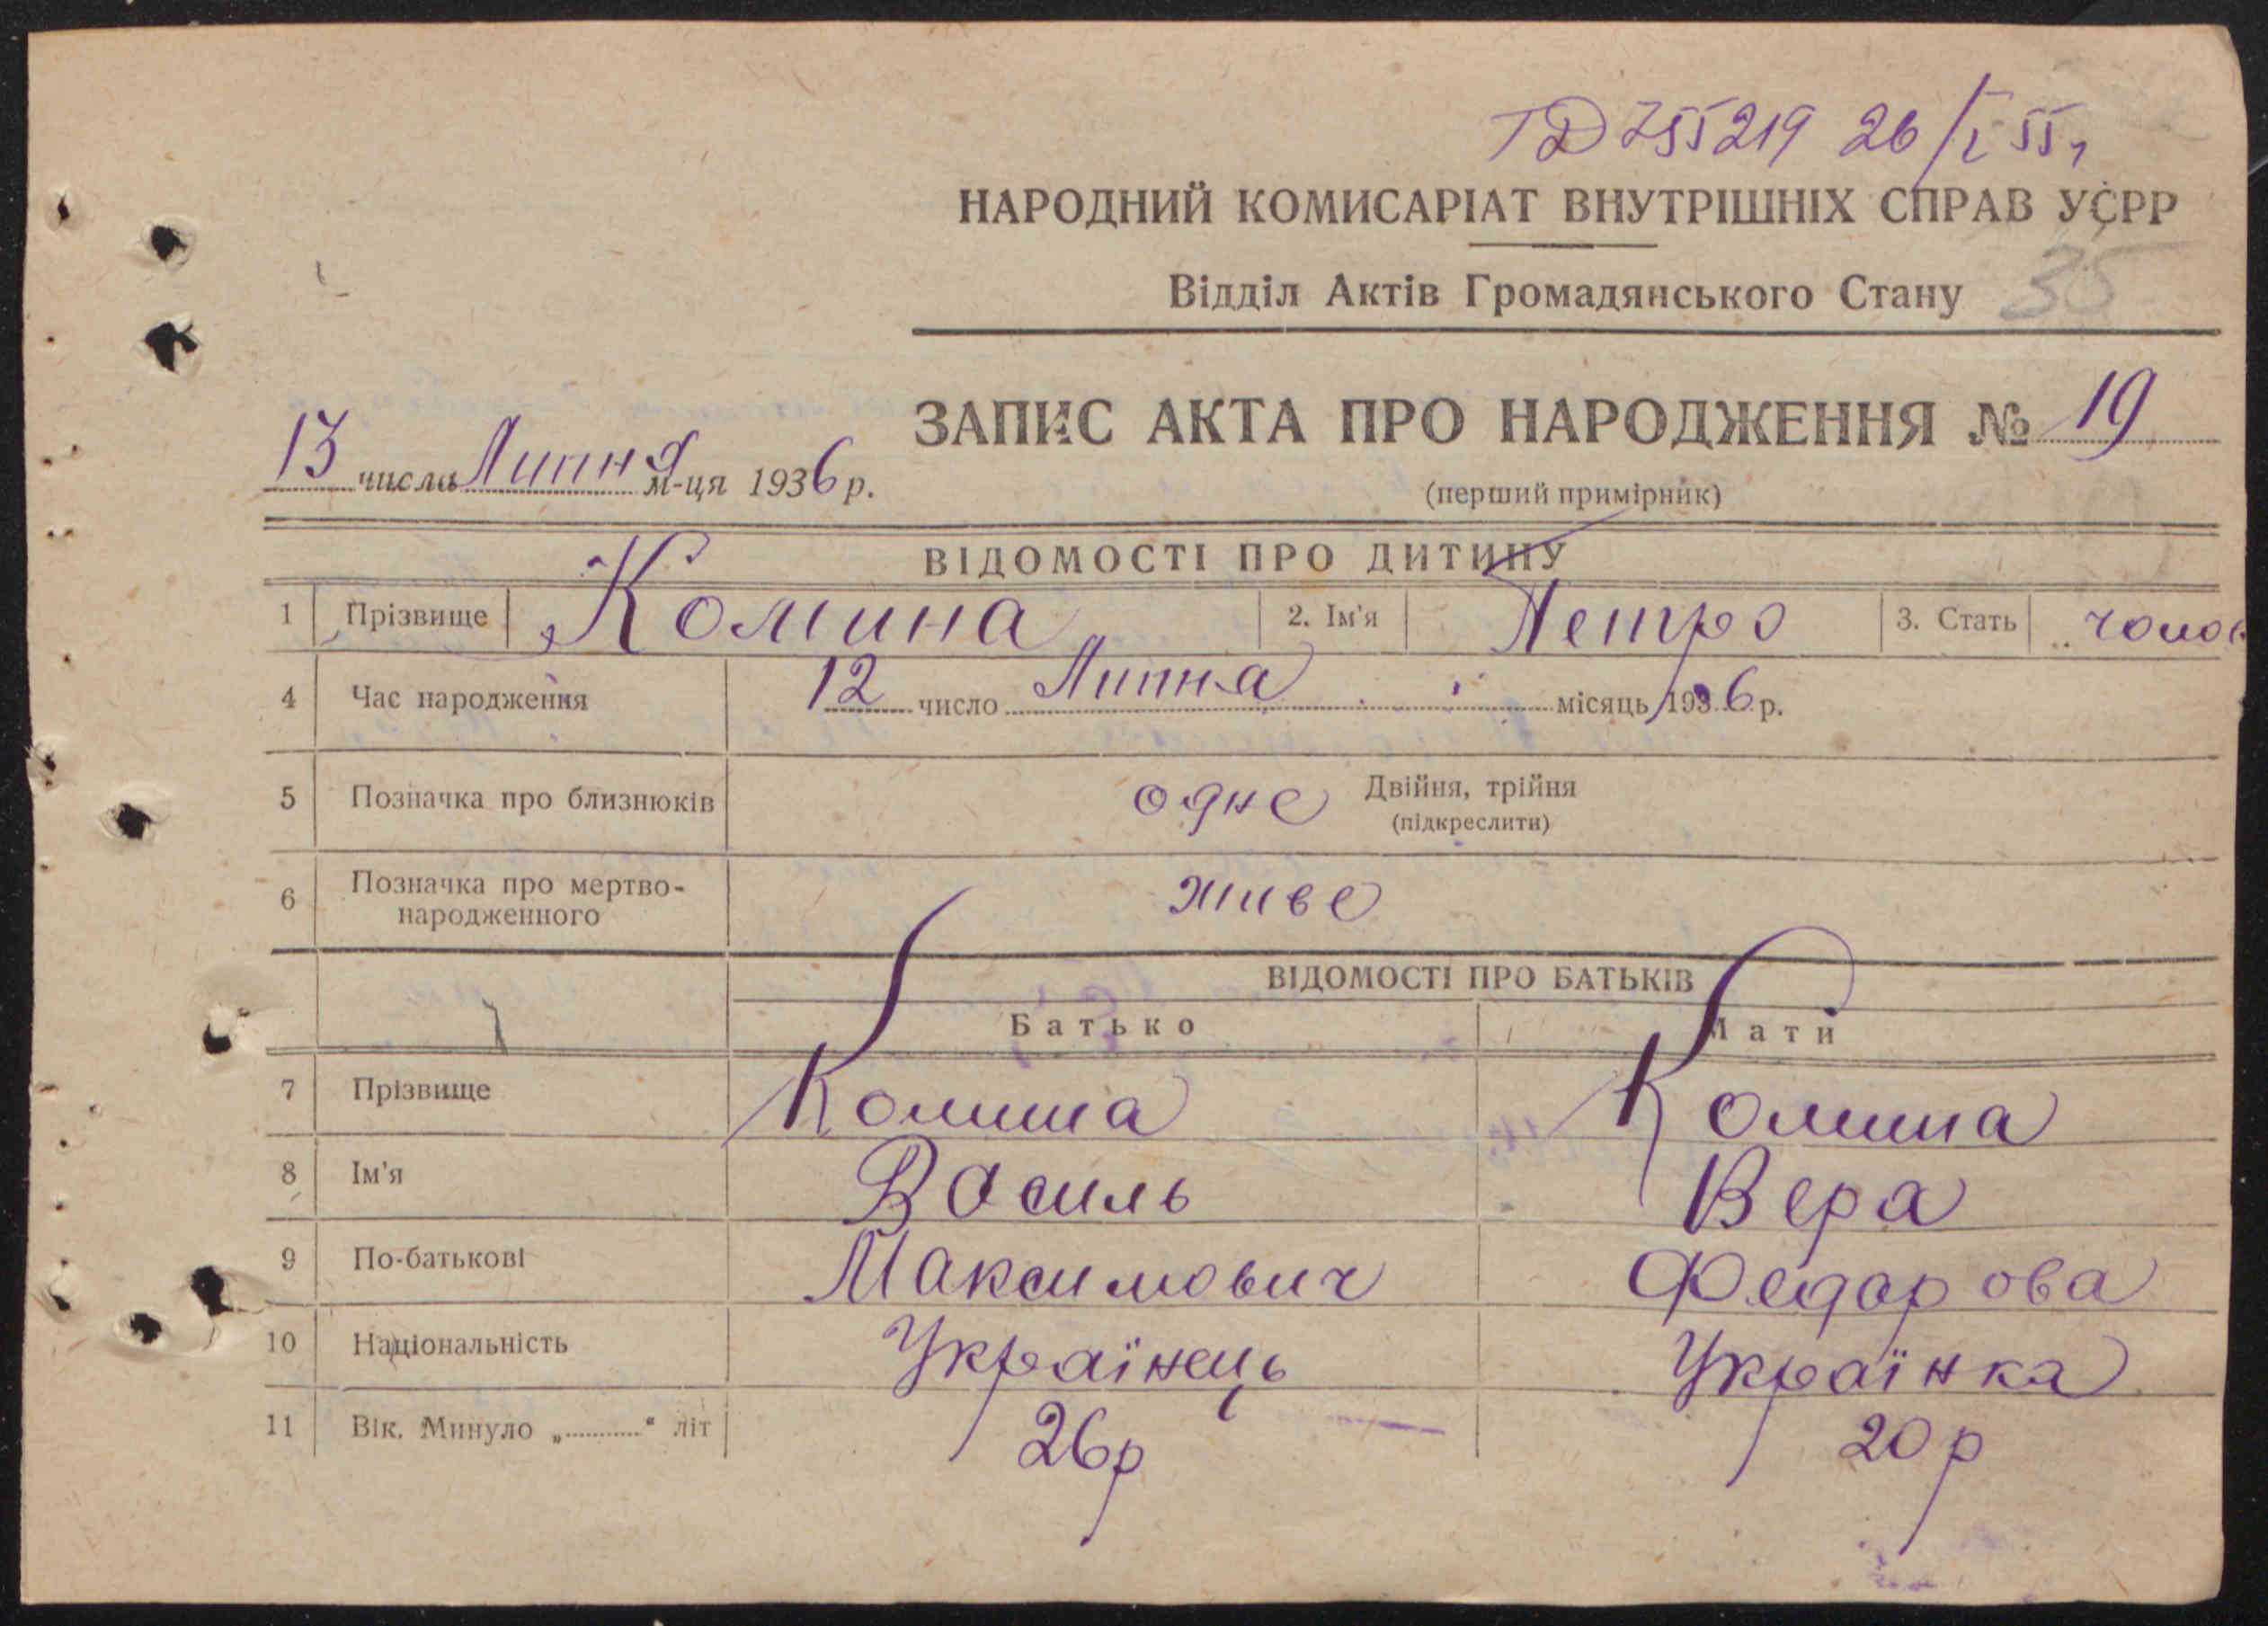 ТД 755219 26/I 55 г
НАРОДНИЙ КОМИСАРІАТ ВНУТРІШНІХ СПРАВ УСРР
Відділ Актів Громадянського Стану 35
ЗАПИС АКТА ПРО НАРОДЖЕННЯ № 19
13 числа Липня м-ця 1936 р.
(перший примірник)
ВІДОМОСТІ ПРО ДИТИНУ
1 Прізвище Комина 2. Ім'я Петро 3. Стать чолов
4 Час народження 12 число Липна місяць 1936 р.
5 Позначка про близнюків одне Двійня, трійня
(підкреслити)
6 Позначка про мертво-
народженного живе
ВІДОМОСТІ ПРО БАТЬКІВ
Батько Мати
7 Прізвище Комина Комина
8 Ім'я Василь Вера
9 По-батькові Максимович Федорова
10 Національність Українець Українка
11 Вік. Минуло „..........“ літ 26 р 20 р